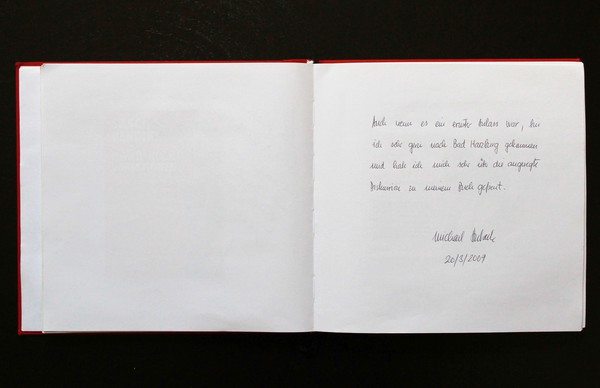 Auch wenn es ein ernster Anlass war, bin
ich sehr gern nach Bad Harzburg gekommen
und habe ich mich sehr über die angeregte
Diskussion zu meinem Buch gefreut.
Michael
20/3/2009